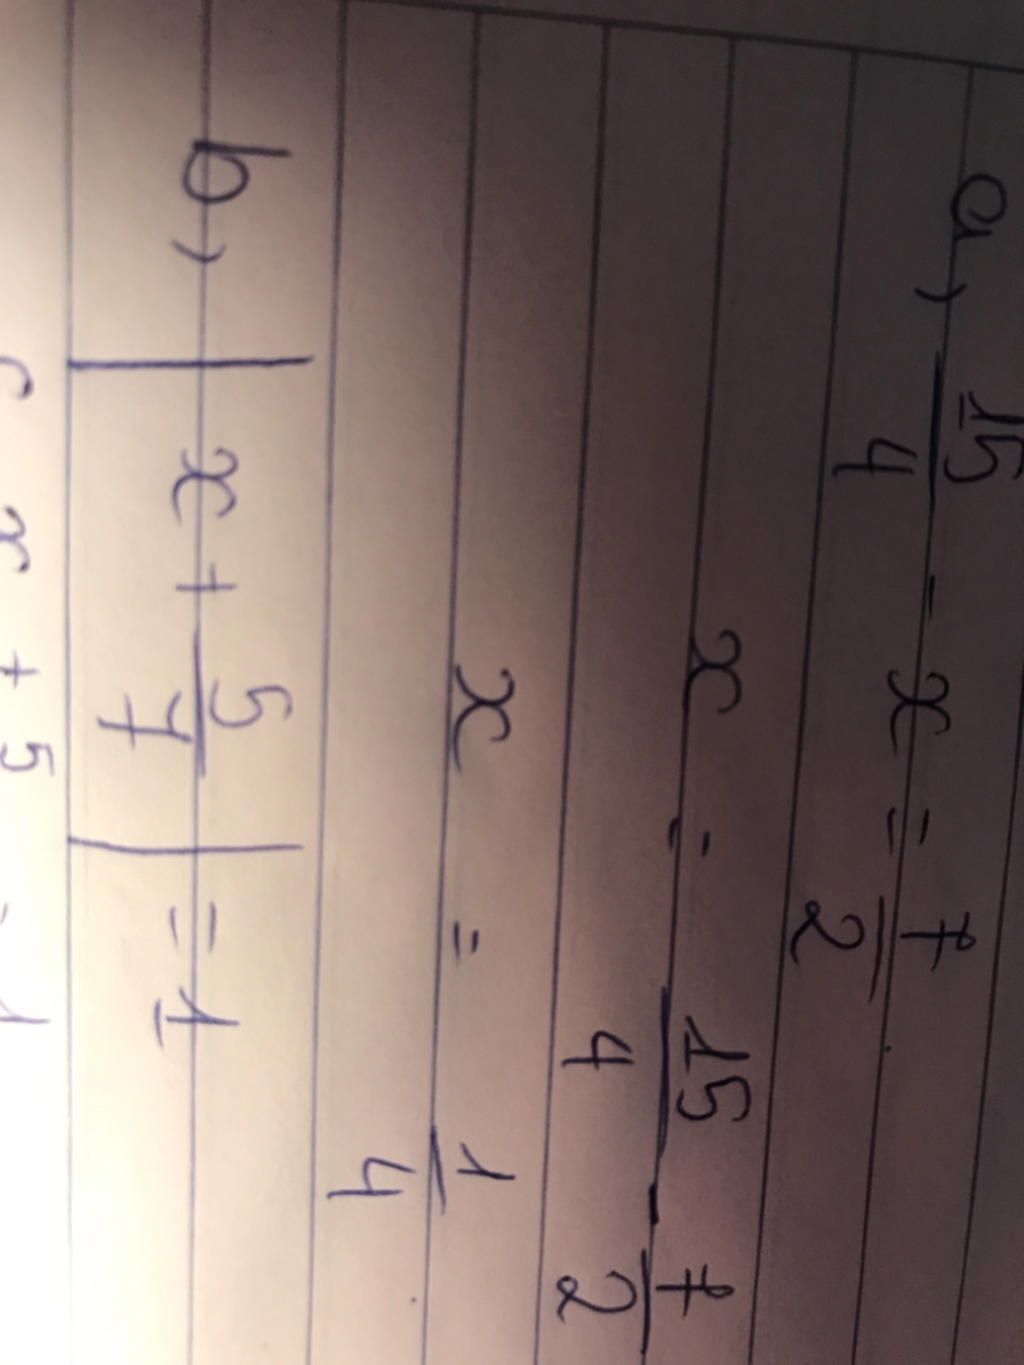 a) 15/4 - x = 7/2
x = 15/4 - 7/2
x = 1/4
b) | x + 5/7 | = 1
x + 5 = 1